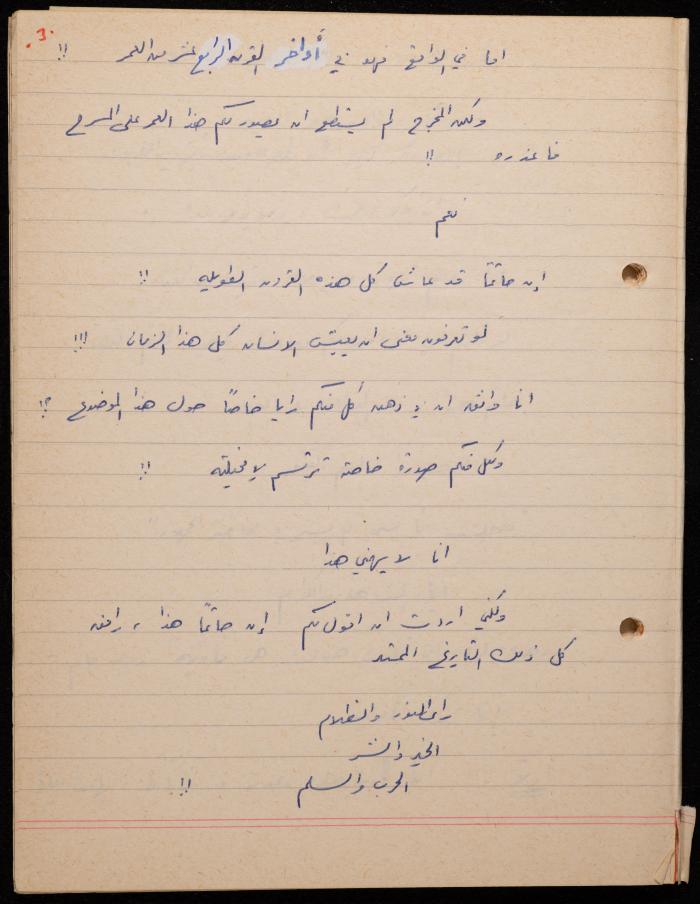 .3.
اما في الواقع فهو في أواخر القرن الرابع عشر من العمر !!
ولكن المخرج لم يستطع ان يصور لكم هذا العمر على المسرح
فاعذره !!
نعم
إن حاتمًا قد عاش كل هذه القرون الطويله !!
لو تعرفون معنى ان يعيش الانسان كل هذا الزمان !!!
انا واثق ان في ذهن كل منكم رايا خاصًا حول هذا الموضوع ؟!
ولكل منكم صورة خاصة ترتسم في مخيلته !!
انا لا يهمني هذا
ولكني اردت ان اقول لكم إن حاتمًا هذا ، رافق
كل ذلك التاريخ الممتد
راى النور والظلام
الخير والشر
الحرب والسلم !!